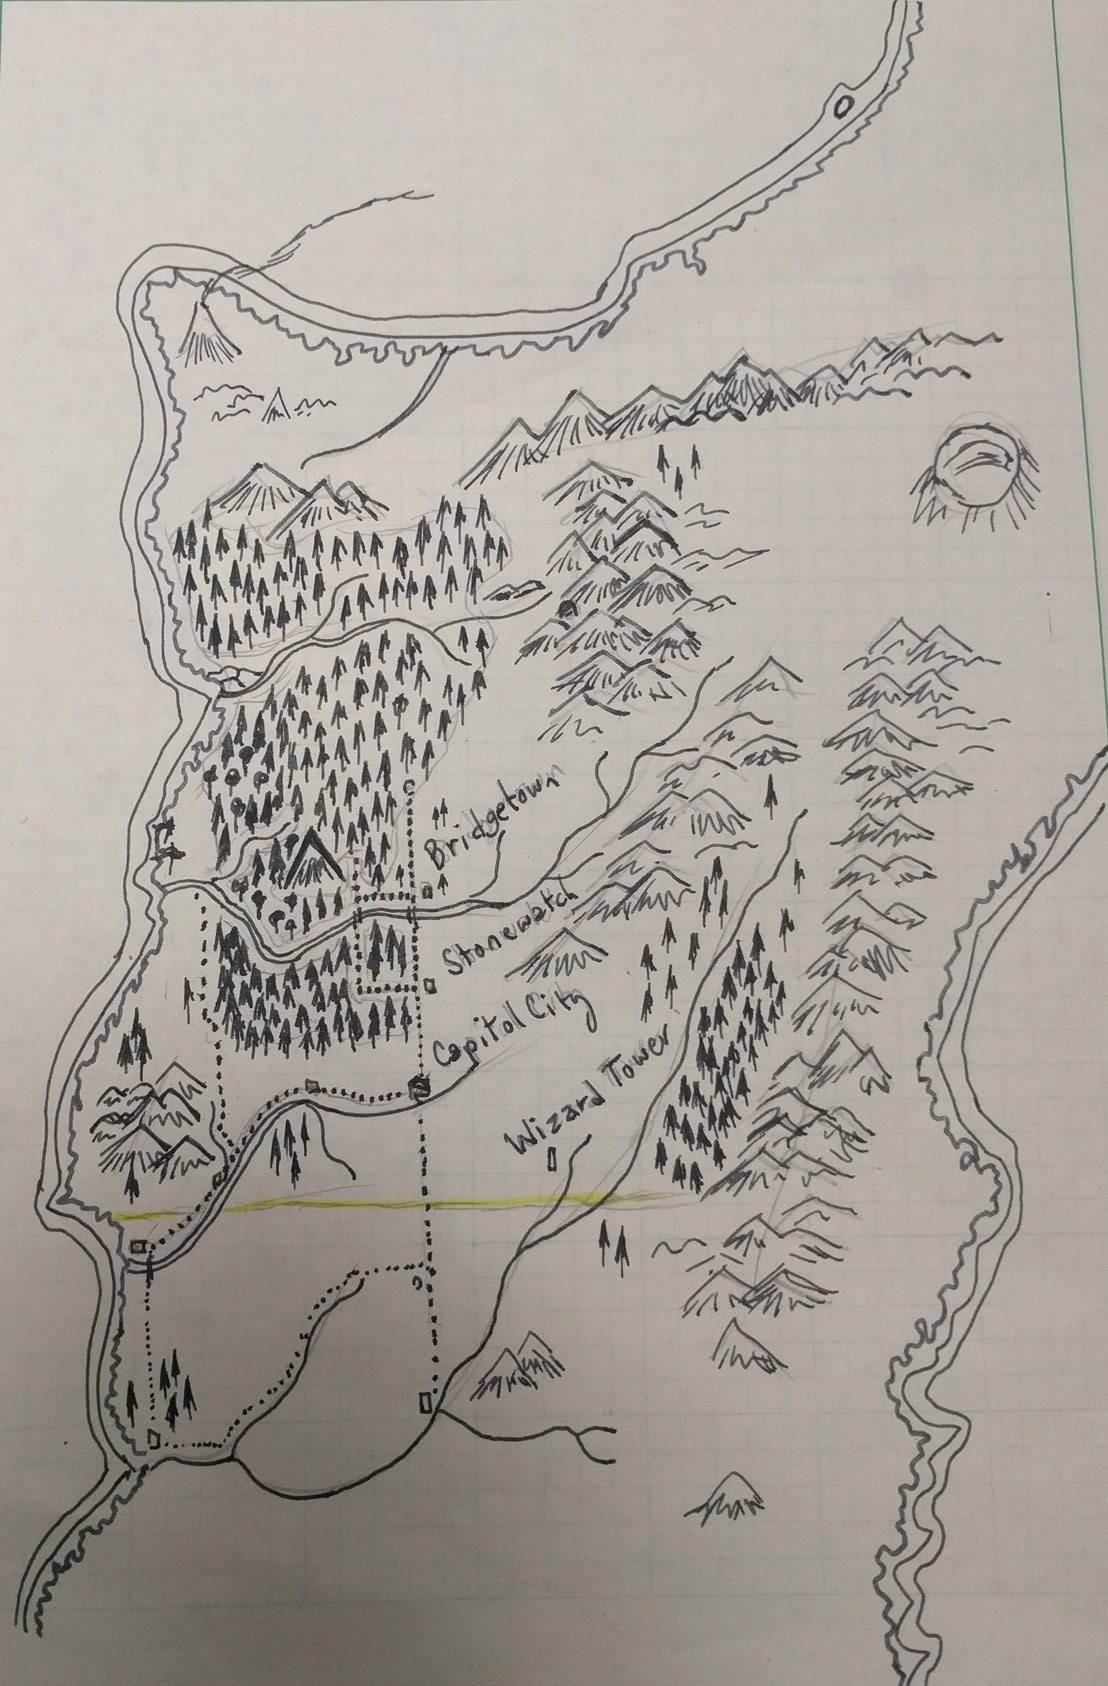 Bridgetown
Stonewatch
Capitol City
Wizard Tower